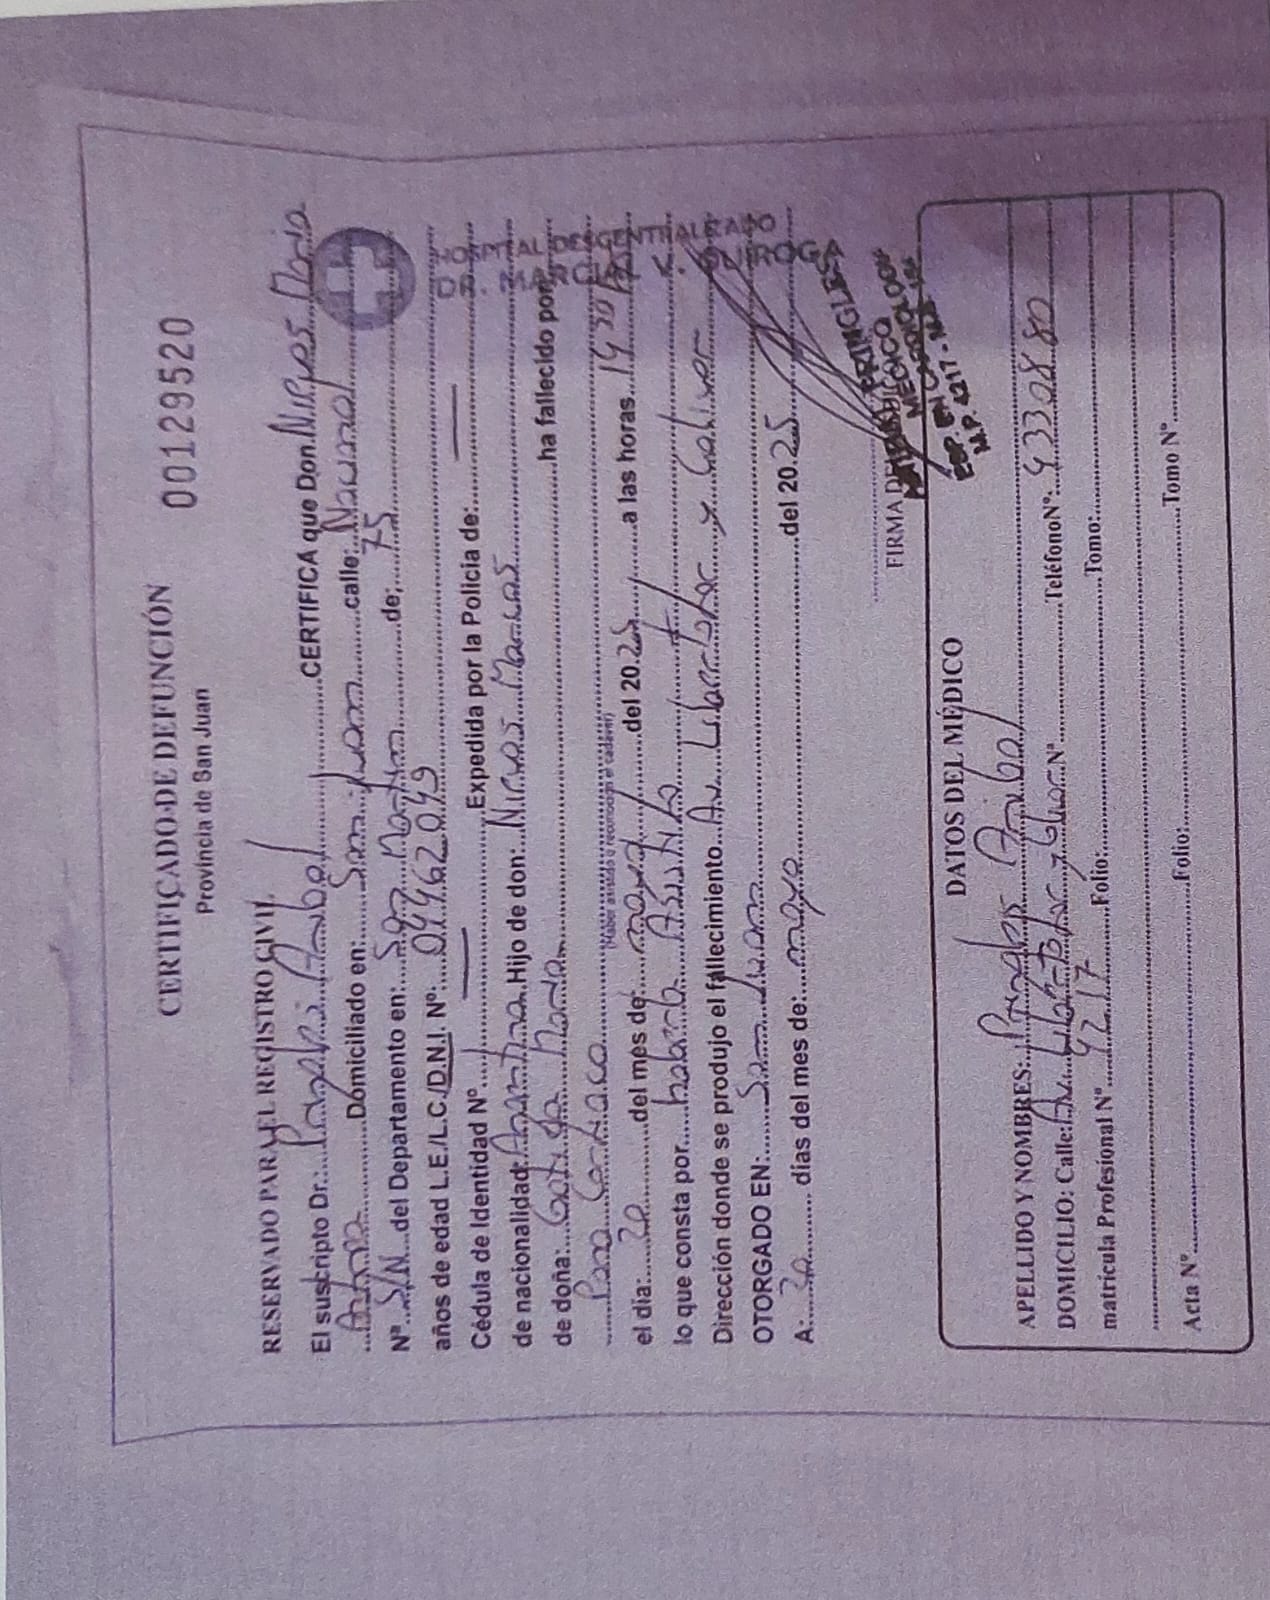 CERTIFICADO DE DEFUNCIÓN
00129520
Provincia de San Juan
RESERVADO PARA EL REGISTRO CIVIL
El suscripto Dr: Aníbal CERTIFICA que Don
Domiciliado en: San Juan calle: Nacional
Nº S/N del Departamento en: San Martin de, 75
años de edad L.E/L.C./D.N.I. Nº: 04462049
Cédula de Identidad Nº Expedida por la Policia de:
de nacionalidad: Argentina Hijo de don: Marcos
de doña: María ha fallecido por
Paro Cardiaco
(Haber asistido o reconocido el cadáver)
el dia: 30 del mes de: mayo del 2025 a las horas 14
lo que consta por haberlo Asistido
Dirección donde se produjo el fallecimiento Av. Libertador y
OTORGADO EN: San Juan
A: 30 días del mes de: mayo del 2025
HOSPITAL DESCENTRALIZADO
DR. MARCIAL V. QUIROGA
FIRMA DEL
PRINGLES
MEDICO
ESP. EN
M.P. 4217
DATOS DEL MÉDICO
APELLIDO Y NOMBRES: Pringles Aníbal
DOMICILIO: Calle: Av Libertador y Nº TeléfonoNº: 4330880
matrícula Profesional Nº 4217 Folio: Tomo:
Acta Nº Folio: Tomo Nº